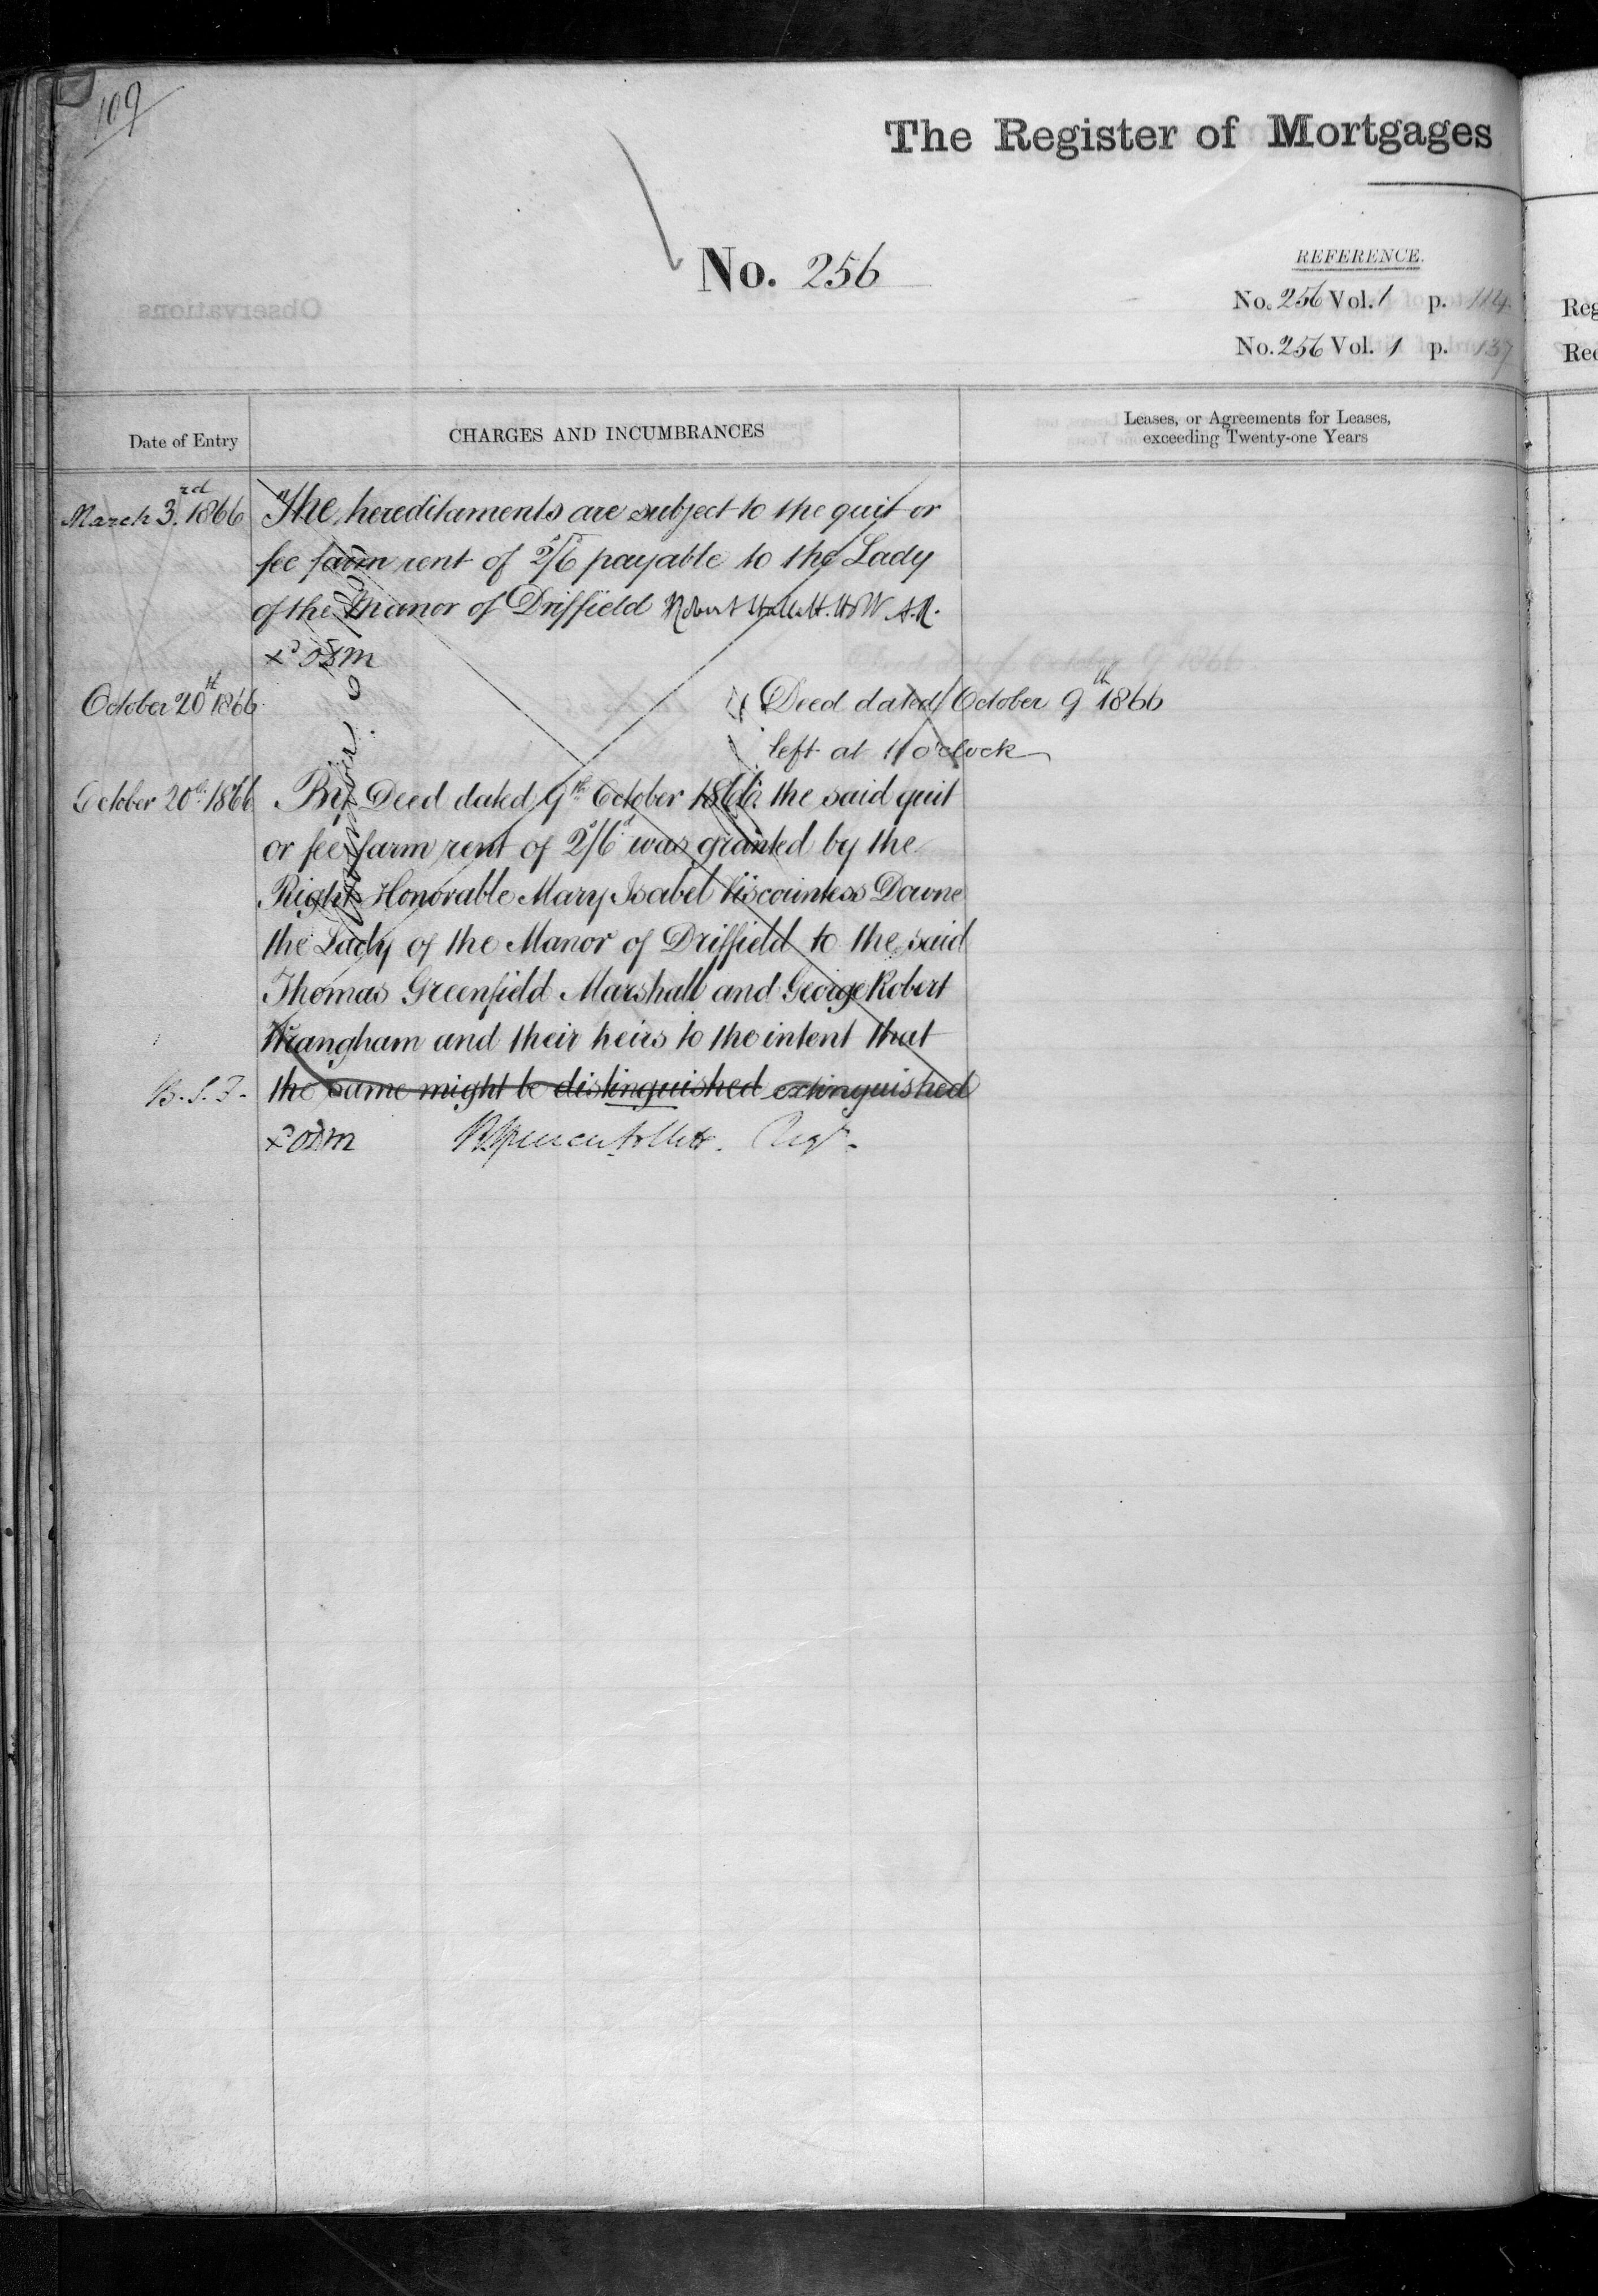 109
The Register of Mortgages
No. 256
REFERENCE.
No. 256 Vol. 1 p. 114
No. 256 Vol. 1 p. 137
Reg
Rec
Date of Entry
CHARGES AND INCUMBRANCES
Leases, or Agreements for Leases,
exceeding Twenty-one Years
March 3rd. 1866 The hereditaments are subject to the quit or
fee farm rent of 2s/6 payable to the Lady
of the Manor of Driffield Robert Hallett
October 20th 1866 Deed dated October 9th 1866
left at 11 o'clock
October 20th 1866 By Deed dated 9th October 1866 the said quit
or fee farm rent of 2s/6d was granted by the
Right Honorable Mary Isabel Viscountess Downe
the Lady of the Manor of Driffield to the said
Thomas Greenfield Marshall and George Robert
Wrangham and their heirs to the intent that
B.S.F. the same might be distinguished extinguished
Regr.
Observations